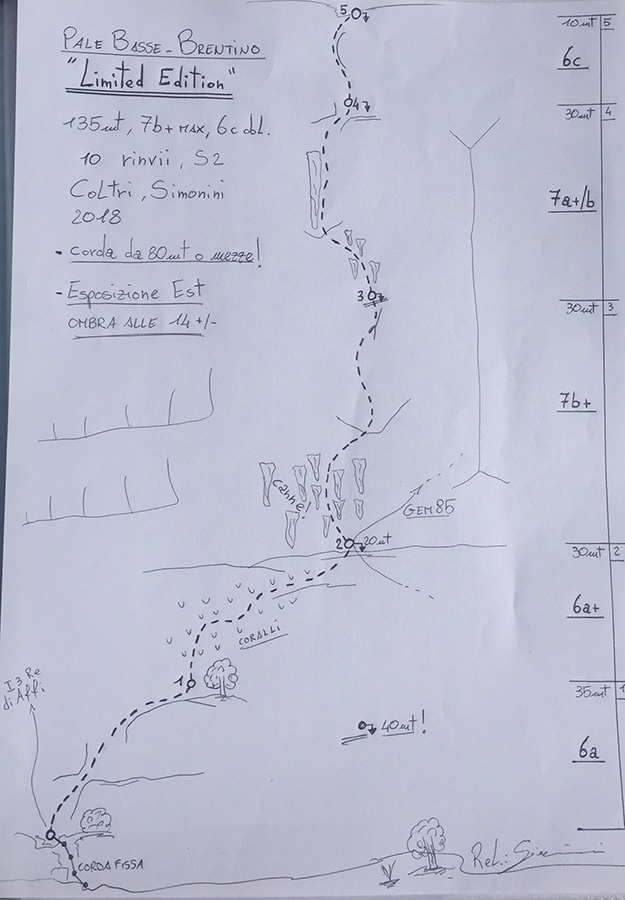 PALE BASSE - BRENTINO
"Limited Edition"
135mt, 7b+ MAX, 6c obl.
10 rinvii, S2
Coltri, Simonini
2018
- corda da 80mt o mezze!
- Esposizione Est
OMBRA ALLE 14 +/-
5
10mt 5
6c
4
30mt 4
7a+/b
3
30mt 3
7b+
canne!
GEM85
2 20mt
30mt 2
6a+
CORALLI
1
I 3 Re
di Affi
35mt 1
40mt!
6a
CORDA FISSA
Rel.: